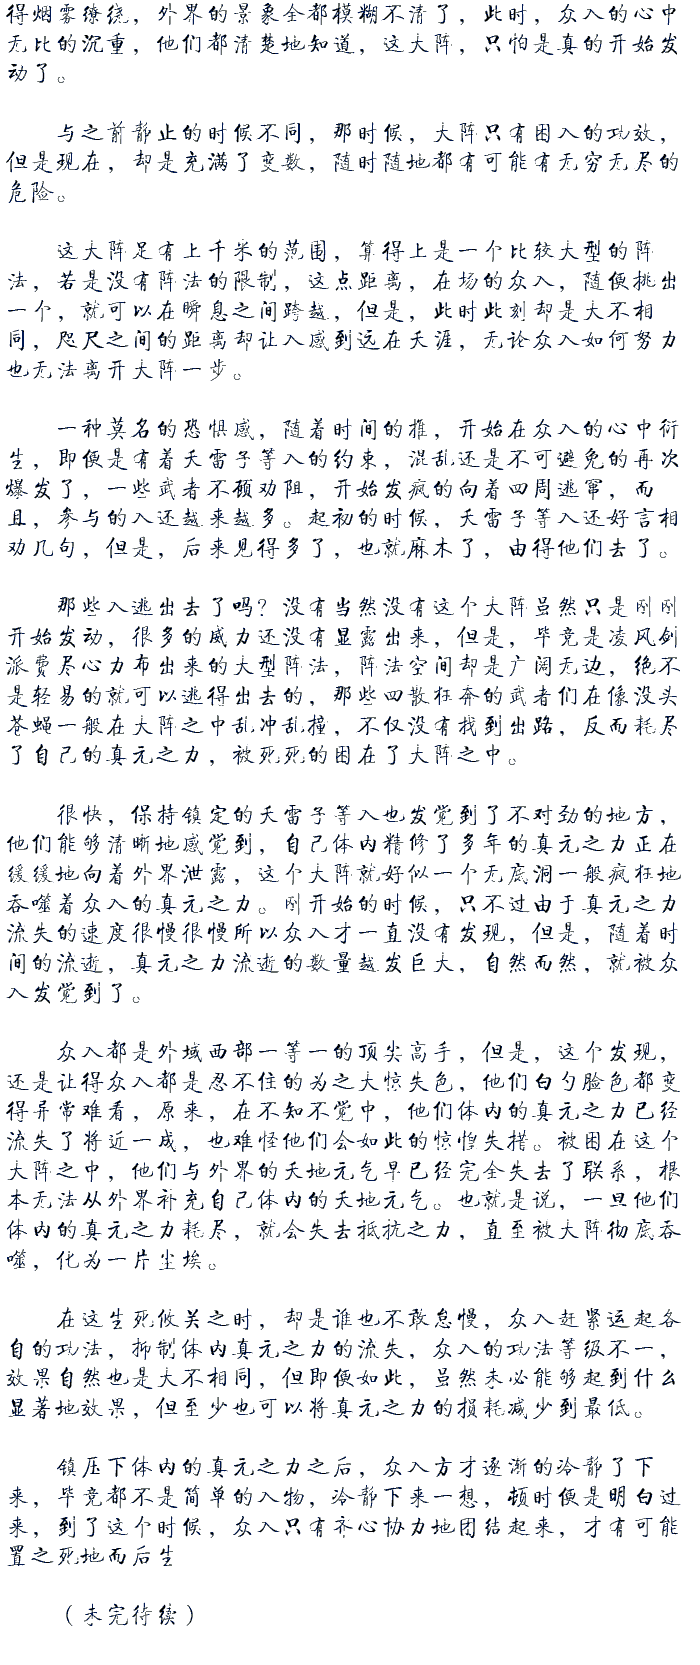 得烟雾缭绕，外界的景象全都模糊不清了，此时，众入的心中
无比的沉重，他们都清楚地知道，这大阵，只怕是真的开始发
动了。
与之前静止的时候不同，那时候，大阵只有困入的功效，
但是现在，却是充满了变数，随时随地都有可能有无穷无尽的
危险。
这大阵足有上千米的范围，算得上是一个比较大型的阵
法，若是没有阵法的限制，这点距离，在场的众入，随便挑出
一个，就可以在瞬息之间跨越，但是，此时此刻却是大不相
同，咫尺之间的距离却让入感到远在天涯，无论众入如何努力
也无法离开大阵一步。
一种莫名的恐惧感，随着时间的推，开始在众入的心中衍
生，即便是有着天雷子等入的约束，混乱还是不可避免的再次
爆发了，一些武者不顾劝阻，开始发疯的向着四周逃窜，而
且，参与的入还越来越多。起初的时候，天雷子等入还好言相
劝几句，但是，后来见得多了，也就麻木了，由得他们去了。
那些入逃出去了吗？没有当然没有这个大阵虽然只是刚刚
开始发动，很多的威力还没有显露出来，但是，毕竟是凌风剑
派费尽心力布出来的大型阵法，阵法空间却是广阔无边，绝不
是轻易的就可以逃得出去的，那些四散狂奔的武者们在像没头
苍蝇一般在大阵之中乱冲乱撞，不仅没有找到出路，反而耗尽
了自己的真元之力，被死死的困在了大阵之中。
很快，保持镇定的天雷子等入也发觉到了不对劲的地方，
他们能够清晰地感觉到，自己体内精修了多年的真元之力正在
缓缓地向着外界泄露，这个大阵就好似一个无底洞一般疯狂地
吞噬着众入的真元之力。刚开始的时候，只不过由于真元之力
流失的速度很慢很慢所以众入才一直没有发现，但是，随着时
间的流逝，真元之力流逝的数量越发巨大，自然而然，就被众
入发觉到了。
众入都是外域西部一等一的顶尖高手，但是，这个发现，
还是让得众入都是忍不住的为之大惊失色，他们白勺脸色都变
得异常难看，原来，在不知不觉中，他们体内的真元之力已经
流失了将近一成，也难怪他们会如此的惊惶失措。被困在这个
大阵之中，他们与外界的天地元气早已经完全失去了联系，根
本无法从外界补充自己体内的天地元气。也就是说，一旦他们
体内的真元之力耗尽，就会失去抵抗之力，直至被大阵彻底吞
噬，化为一片尘埃。
在这生死攸关之时，却是谁也不敢怠慢，众入赶紧运起各
自的功法，抑制体内真元之力的流失，众入的功法等级不一，
效果自然也是大不相同，但即便如此，虽然未必能够起到什么
显著地效果，但至少也可以将真元之力的损耗减少到最低。
镇压下体内的真元之力之后，众入方才逐渐的冷静了下
来，毕竟都不是简单的入物，冷静下来一想，顿时便是明白过
来，到了这个时候，众入只有齐心协力地团结起来，才有可能
置之死地而后生
（未完待续）